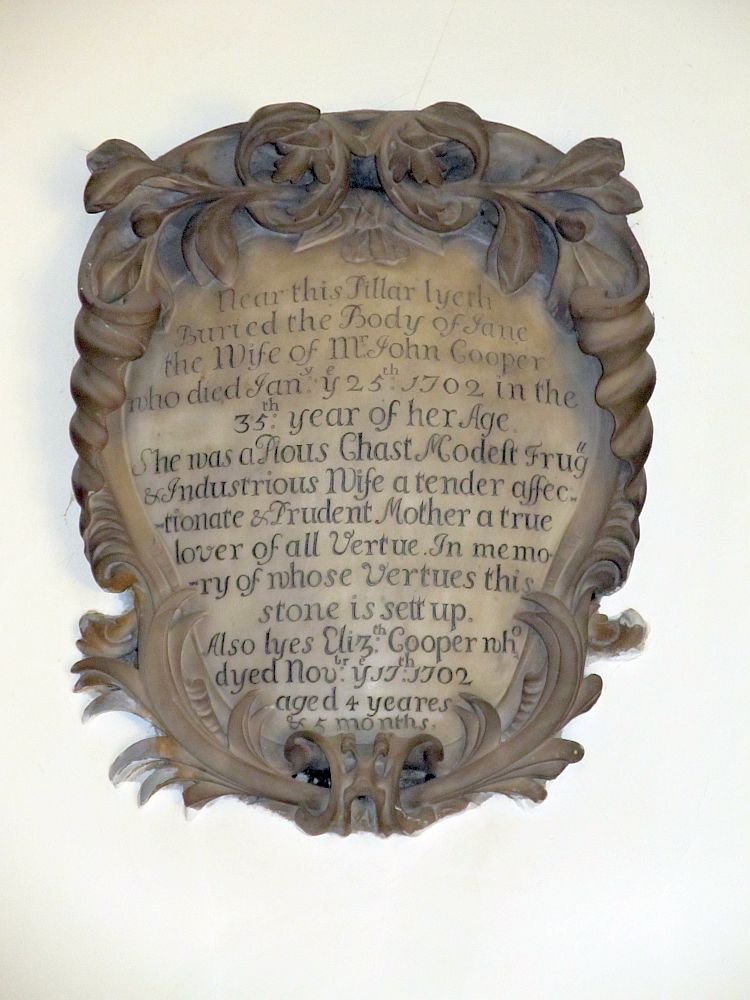 Near this Pillar lyeth
Buried the Body of Jane
the Wife of Mr. John Cooper
who died Jan:y ye 25th: 1702 in the
35th: year of her Age.
She was a Pious Chast Modest Frugll
& Industrious Wife a tender affec-
-tionate & Prudent Mother a true
lover of all Vertue. In memo-
-ry of whose Vertues this
stone is sett up.
Also lyes Eliz:th Cooper who
dyed Nov:br ye 17th: 1702
aged 4 yeares
& 5 months.